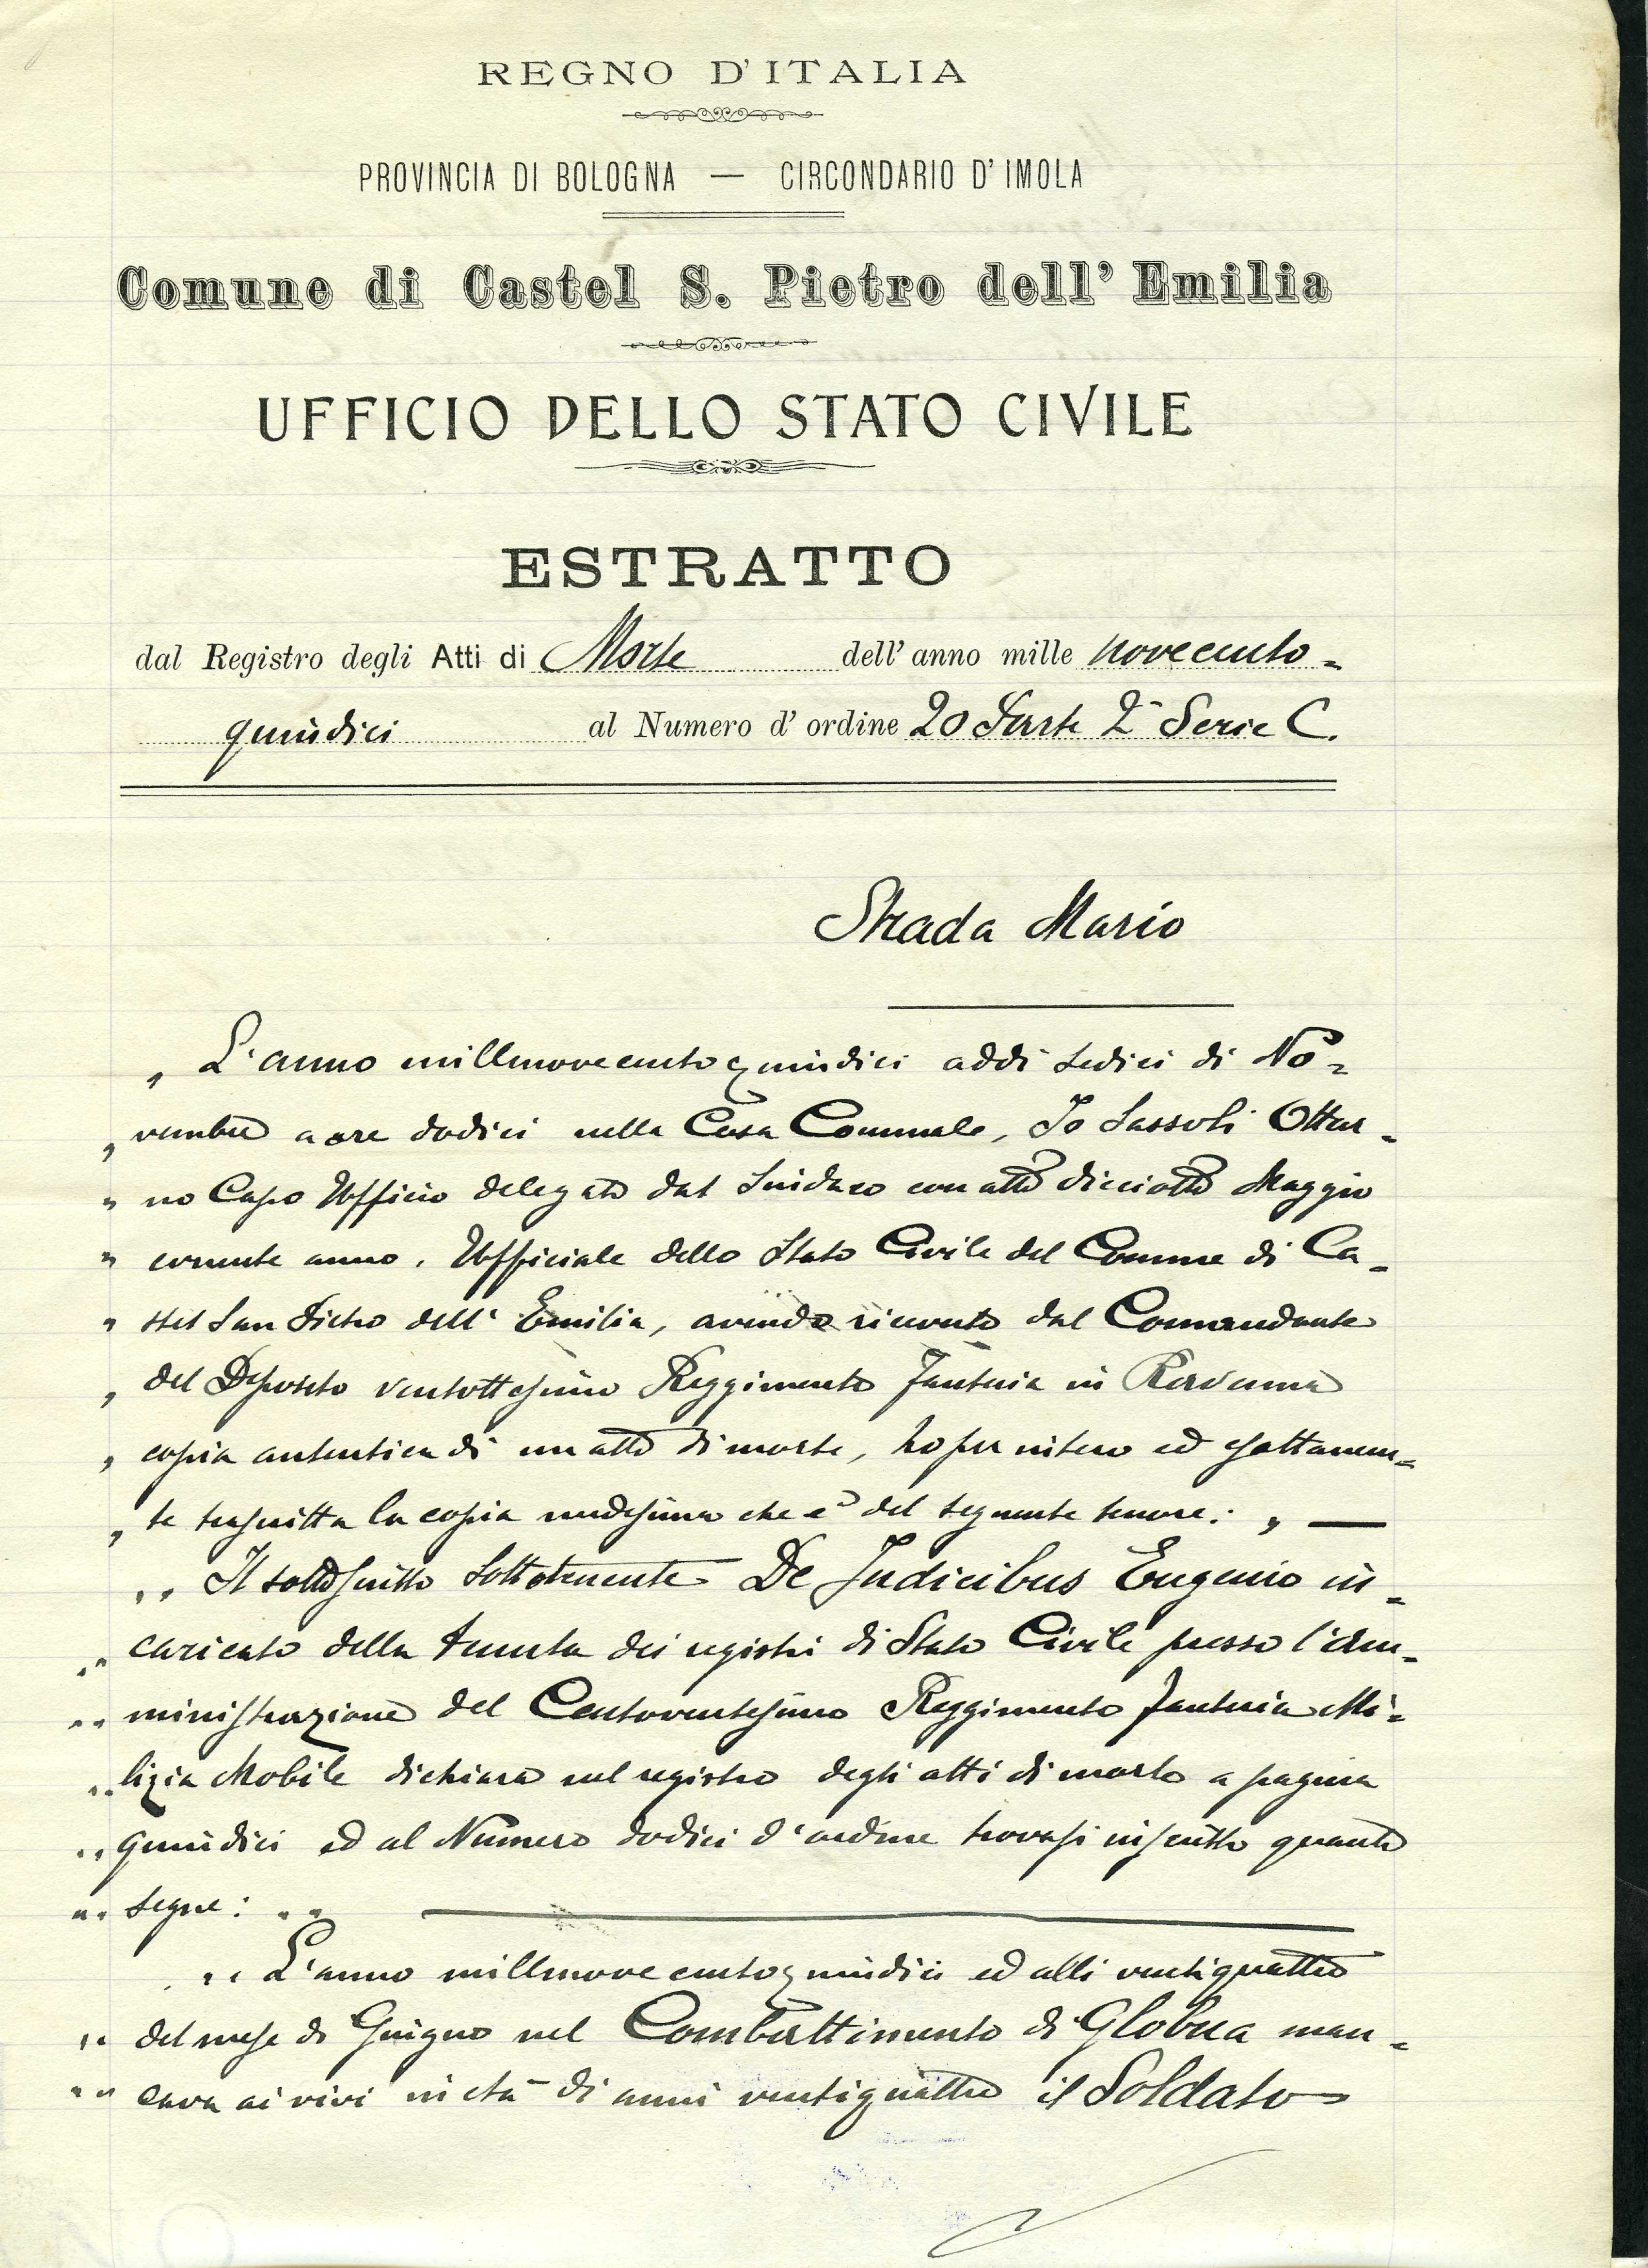 REGNO D'ITALIA
PROVINCIA DI BOLOGNA — CIRCONDARIO D'IMOLA
Comune di Castel S. Pietro dell' Emilia
UFFICIO DELLO STATO CIVILE
ESTRATTO
dal Registro degli Atti di Morte dell' anno mille novecento =
quindici al Numero d' ordine 20 Parte 2ª Serie C.
Strada Mario
„ L'anno millenovecentoquindici addi sedici di No=
„ vembre a ore dodici nella Casa Comunale, Io Sassoli Ottav=
„ no Capo Ufficio delegato dal Sindaco con atto diciotto Maggio
„ corrente anno, Ufficiale dello Stato Civile del Comune di Ca=
„ stel San Pietro dell' Emilia, avendo ricevuto dal Comandante
„ del Deposito ventottesimo Reggimento Fanteria in Ravenna
„ copia autentica di un atto di morte, ho per intero ed esattamen=
„ te trascritta la copia medesima che è del seguente tenore: „ —
„ „ Il sottoscritto Sottotenente De Judicibus Eugenio in=
„ „ caricato della tenuta dei registri di Stato Civile presso l'am=
„ „ ministrazione del Centoventesimo Reggimento Fanteria Mi=
„ „ lizia Mobile dichiara sul registro degli atti di morte a pagina
„ „ quindici ed al Numero dodici d'ordine trovasi inscritto quanto
„ „ segue: „ „
„ „ L'anno millenovecentoquindici ed alli ventiquattro
„ „ del mese di Giugno nel Combattimento di Globna man=
„ „ cava ai vivi in età di anni ventiquattro il Soldato